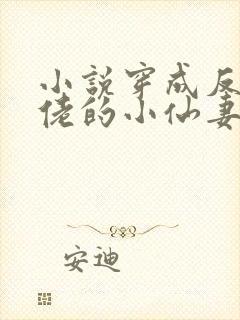 小说穿成反
佬的小仙妻
安迪